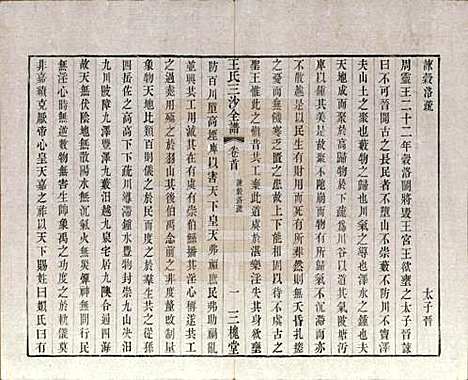 諫穀洛疏
太子晉
周靈王二十二年穀洛鬭將毀王宮王欲壅之太子晉諫
曰不可晉聞古之長民者不墮山不崇藪不防川不竇澤
夫山土之聚也藪物之歸也川氣之導也澤水之鍾也夫
天地成而聚於高歸物於下疏爲川谷以導其氣陂塘汙
庳以鍾其美是故聚不阤崩而物有所歸氣不沉滯而亦
不散越是以民生有財用而死有所葬然則無夭昏札瘥
之憂而無饑寒乏匱之患故上下能相固以待不虞古之
聖王惟此之慎昔共工棄此道虞於湛樂淫失其身欲壅
王氏三沙全譜
卷首
諫穀洛疏
一
三槐堂
防百川墮高堙庳以害天下皇天弗福庶民弗助禍亂
並興共工用滅其在有虞有崇伯鯀播其淫心稱遂共工
之過堯用殛之於羽山其後伯禹念前之非度釐改制量
象物天地比類百則儀之於民而度之於羣生共之從孫
四岳佐之高高下下疏川導滯鍾水豐物封崇九山決汨
九川陂障九澤豐殖九藪汨越九泉宅居九隩合通四海
故天無伏陰地無散陽水無沉氣火無災燀神無間行民
無淫心時無逆數物無害生帥象禹之功度之於軌儀莫
非嘉績克厭帝心皇天嘉之祚以天下賜姓曰姒氏曰有